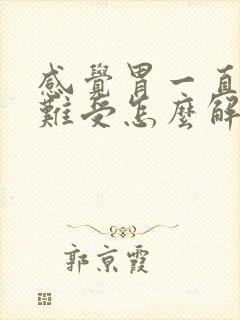 感覺胃一直
難受怎麼解
郭京霞